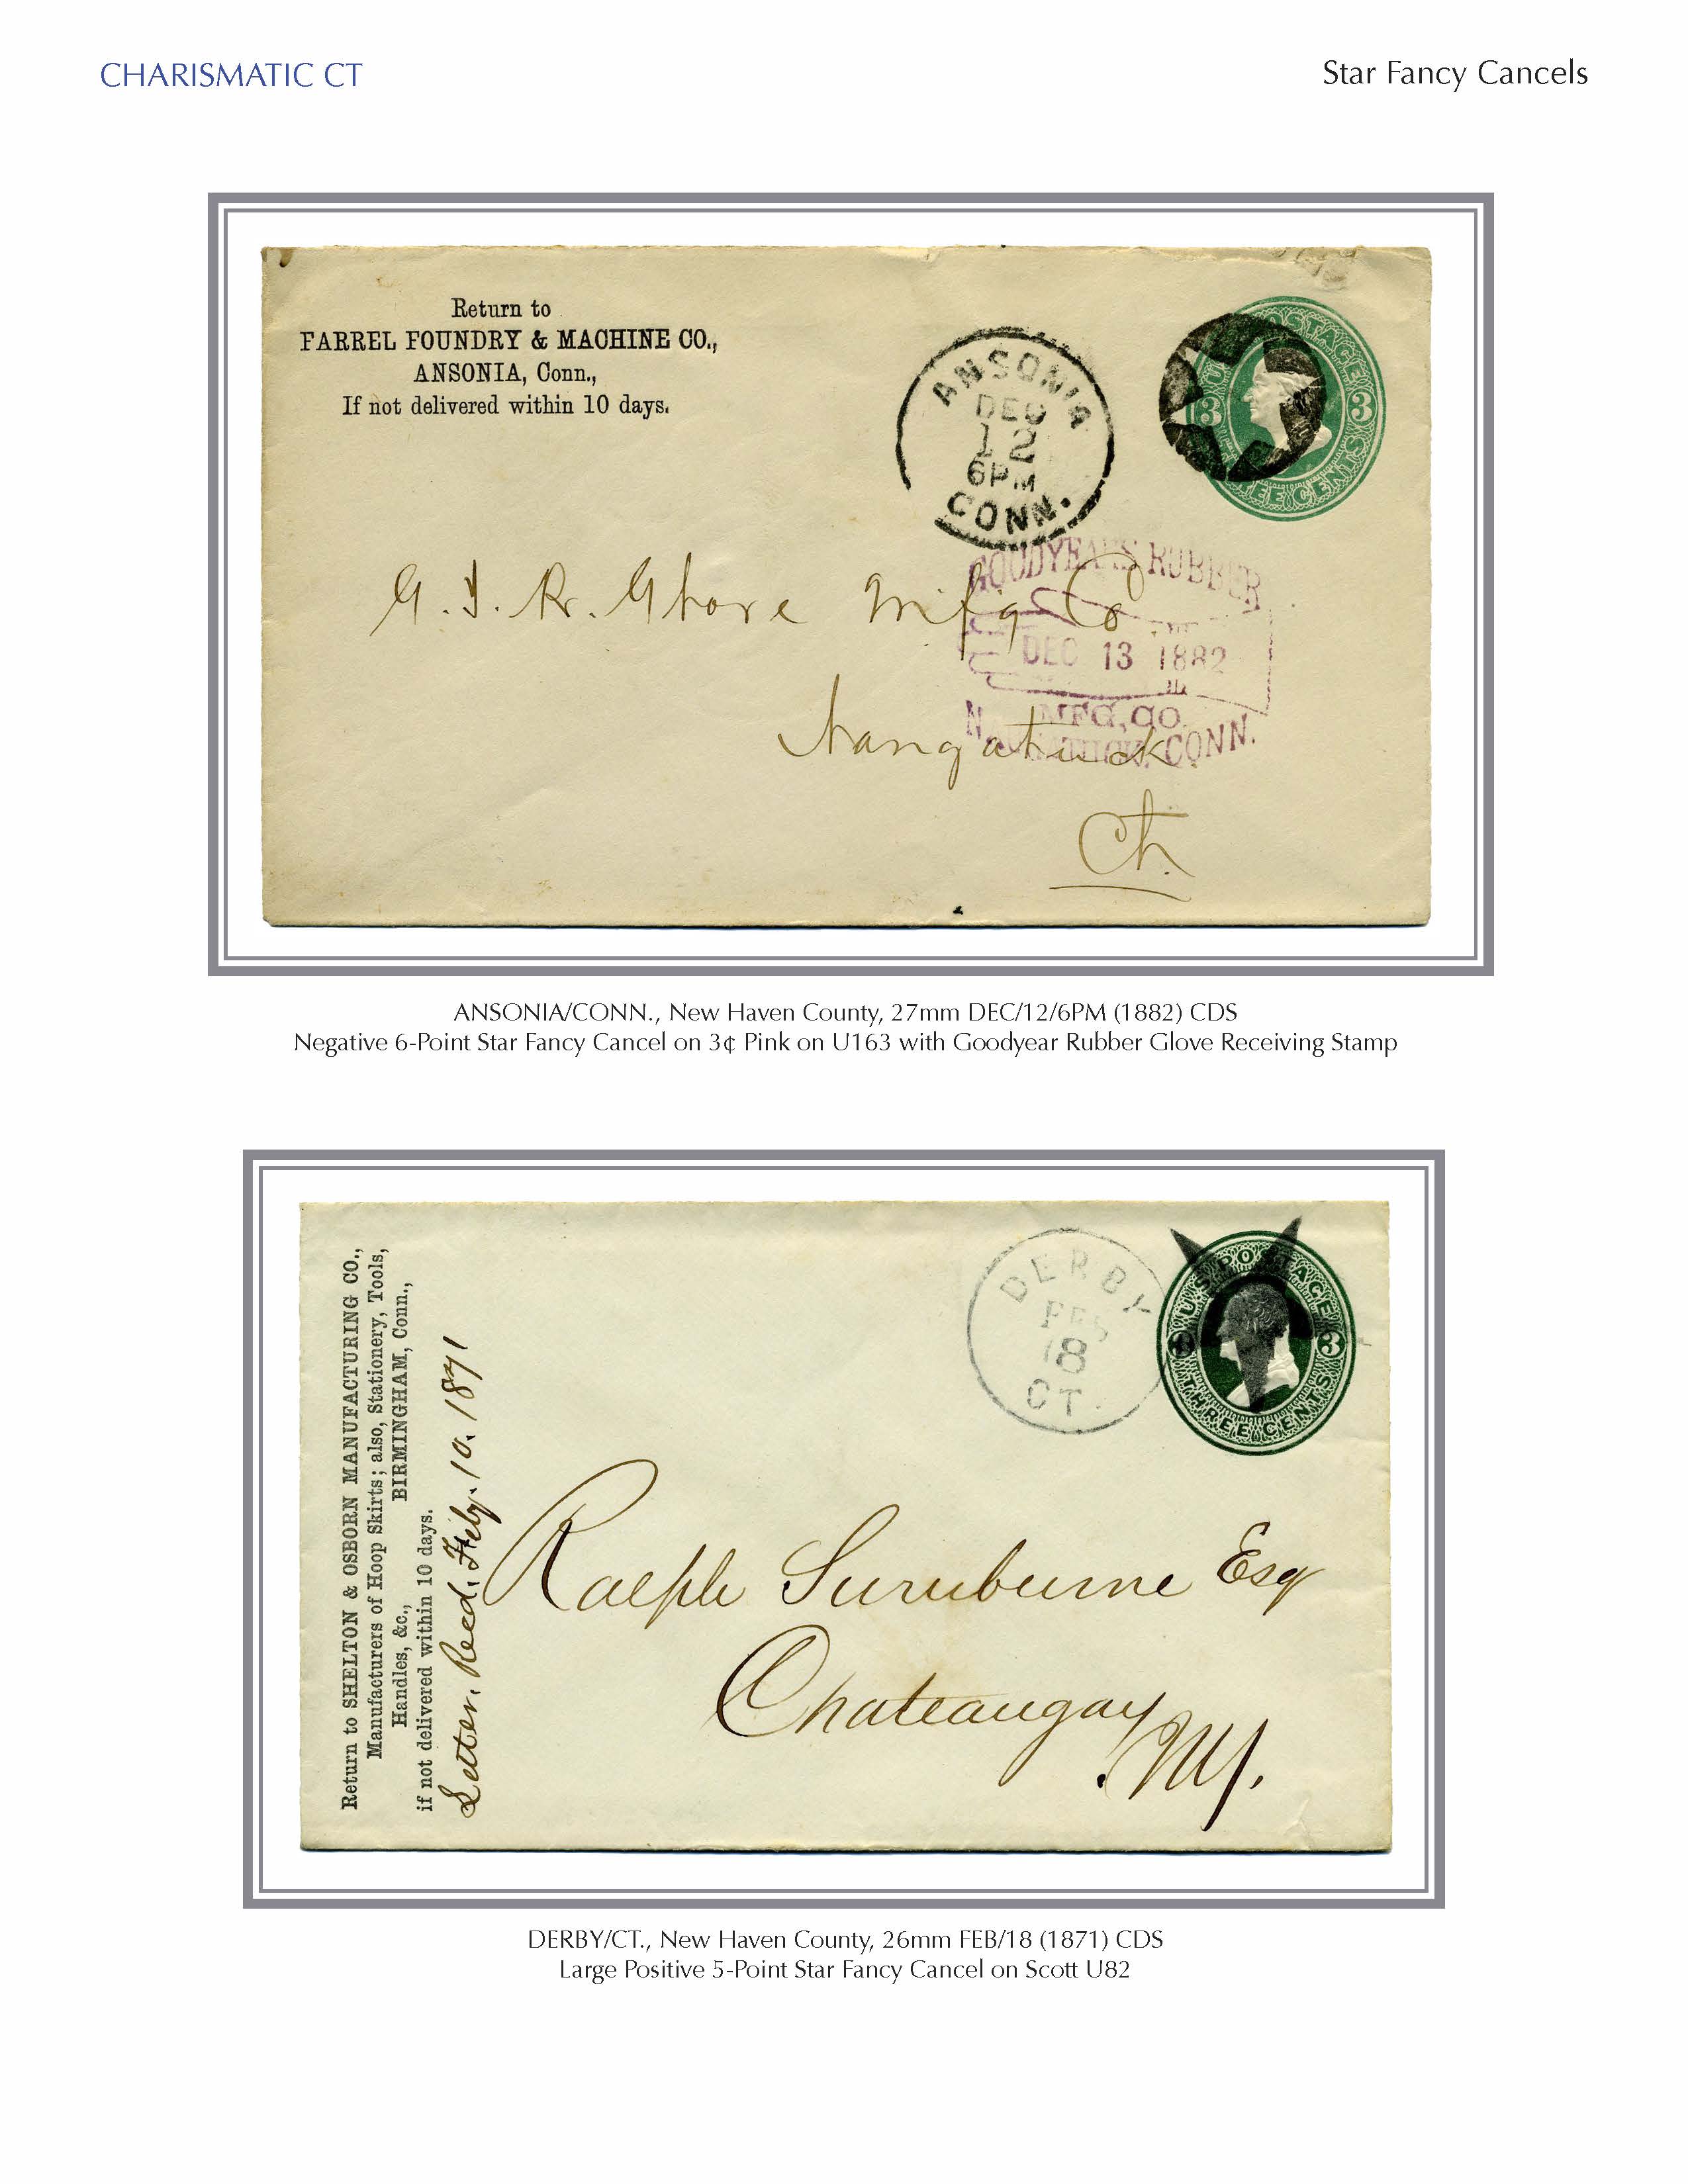 CHARISMATIC CT
Star Fancy Cancels
Return to
FARREL FOUNDRY & MACHINE CO.,
ANSONIA, Conn.,
If not delivered within 10 days.
ANSONIA
DEC
12
6PM
CONN.
U POSTAGE
3 3
EE CENTS
G. I. R. Glove Mfg Co
Naugatuck
Ct.
GOODYEAR'S RUBBER
DEC 13 1882
MFG, CO.
NAUGATUCK, CONN.
ANSONIA/CONN., New Haven County, 27mm DEC/12/6PM (1882) CDS
Negative 6-Point Star Fancy Cancel on 3¢ Pink on U163 with Goodyear Rubber Glove Receiving Stamp
Return to SHELTON & OSBORN MANUFACTURING CO.,
Manufacturers of Hoop Skirts; also, Stationery, Tools,
Handles, &c., BIRMINGHAM, Conn.,
if not delivered within 10 days.
Letter. Recd. Feby. 10. 1871
DERBY
FEB
18
CT.
U.S. POSTAGE
3 3
THREE CENTS
Ralph Esq
Chateaugay
N.Y.
DERBY/CT., New Haven County, 26mm FEB/18 (1871) CDS
Large Positive 5-Point Star Fancy Cancel on Scott U82